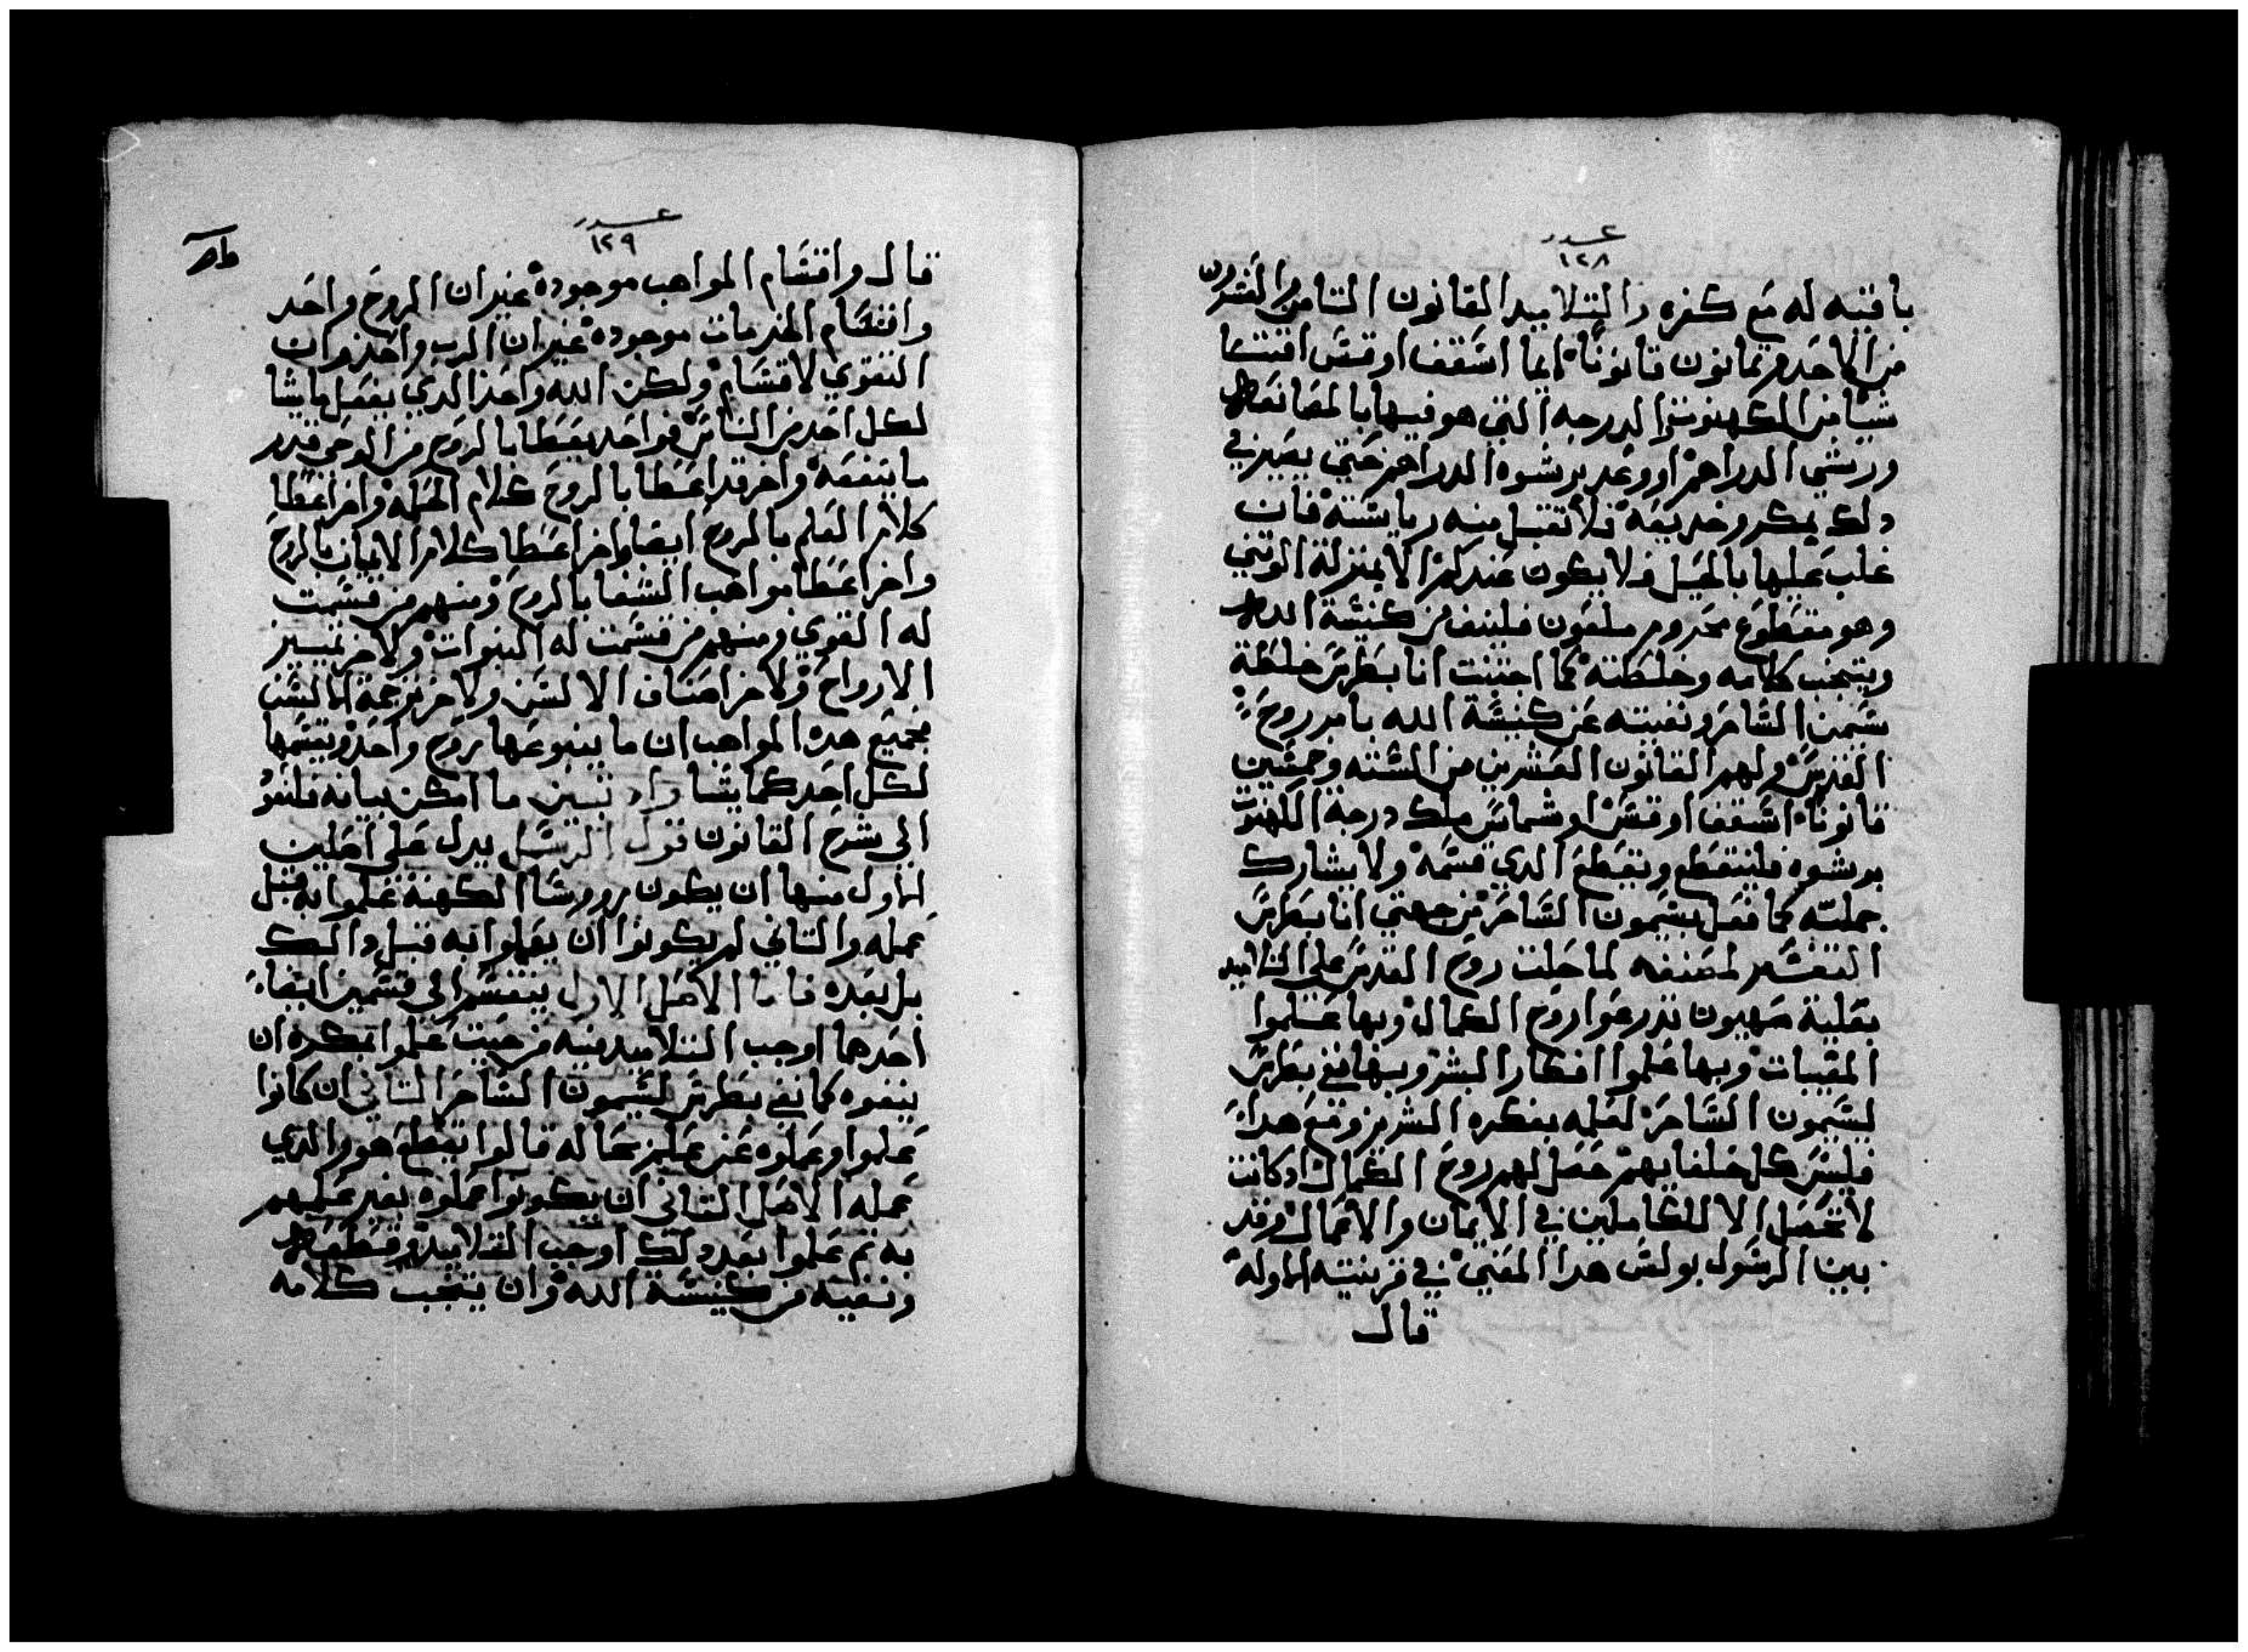 عدد
١٢٨
باقيه له مع كفره والتلاميد القانون التامن والعشرون
من الاحد وتمانون قانونا ايما اسقف او قس اقتنا
شيا من الكهنوت والدرجه التي هو فيها بالمصانعه
ورشي الدراهم او وعد برشوه الدراهم حتي يصير في
دلك بمكر وخديعه فلا تقبل منه رياسته فان
غلب عليها بالحيل فلا يكون عندكم الا بمنزلة الوتني
وهو مقطوع محروم ملعون فلينفى من كنيسة الله
ويتجنب كلامه وخلطته كما اجتنبت انا بطرس خلطة
سيمن الساحر ونفيته عن كنيسة الله بامر روح
القدس ولهم القانون العشرين من السته وخمسين
قانونا اسقف او قس او شماس ملك درجة الكهنوت
برشوه فلينقطع ويقطع الدي قسمه ولا يشارك
جملته كما فعل بسيمون الساحر من جهتي انا بطرس
التفسير لمصنفه لما حلت روح القدس علي التلاميد
بعلية صهيون تدرعوا روح الكمال وبها علموا
المغيبات وبها علموا افكار البشر وبها نفي بطرس
لسيمون الساحر لعلمه بفكره الشرير ومع هدا
فليس كل خلفايهم حصل لهم روح الكمال اد كانت
لا تحصل الا للكاملين في الايمان والاعمال وقد
بين الرسول بولس هدا المعني في قرنتيه الاوله
قال
عدد
١٢٩
قال واقسام المواهب موجوده غير ان الروح واحد
واقسام الخدمات موجوده غير ان الرب واحد وان
القوي لاقسام ولكن الله واحد الدي يفعل ما يشا
لكل احد من الناس فواحد يعطا بالروح من الوحي قدر
ما ينفعه واخر قد اعطا بالروح كلام الحكمه واخر اعطا
كلام العلم بالروح ايضا واخر اعطا كلام الايمان بالروح
واخر اعطا مواهب الشفا بالروح ومنهم من قسمت
له القوي ومنهم من قسمت له النبوات ولاخر تمييز
الارواح ولاخر اصناف الالسن ولاخر ترجمة الالسن
فجميع هده المواهب ان ما ينبوعها روح واحد ويقسمها
لكل احد كما يشا واد تبين ما امكن بيانه فلنعود
الي شرح القانون قول الرسل يدل علي اصلين
الاول منها ان يكون روورسا الكهنة علموا به قبل
عمله والتاني لم يكونوا ان يعلموا به قبل دالك
بل بعده فاما الاصل الاول ينقسم الي قسمين ايضا
احدها اوجب التلاميد فيه من حيت علموا بمكره ان
ينفوه كما نفي بطرس لسيمون الساحر التاني ان كانوا
علموا وعملوه عن علم بحاله قالوا يقطع هو والدي
عمله الاصل التاني ان يكونوا عملوه بغير علمهم
به تم علموا بعد دلك اوجب التلاميد قطعه
ونفيه من كنيسة الله وان يتجنب كلامه